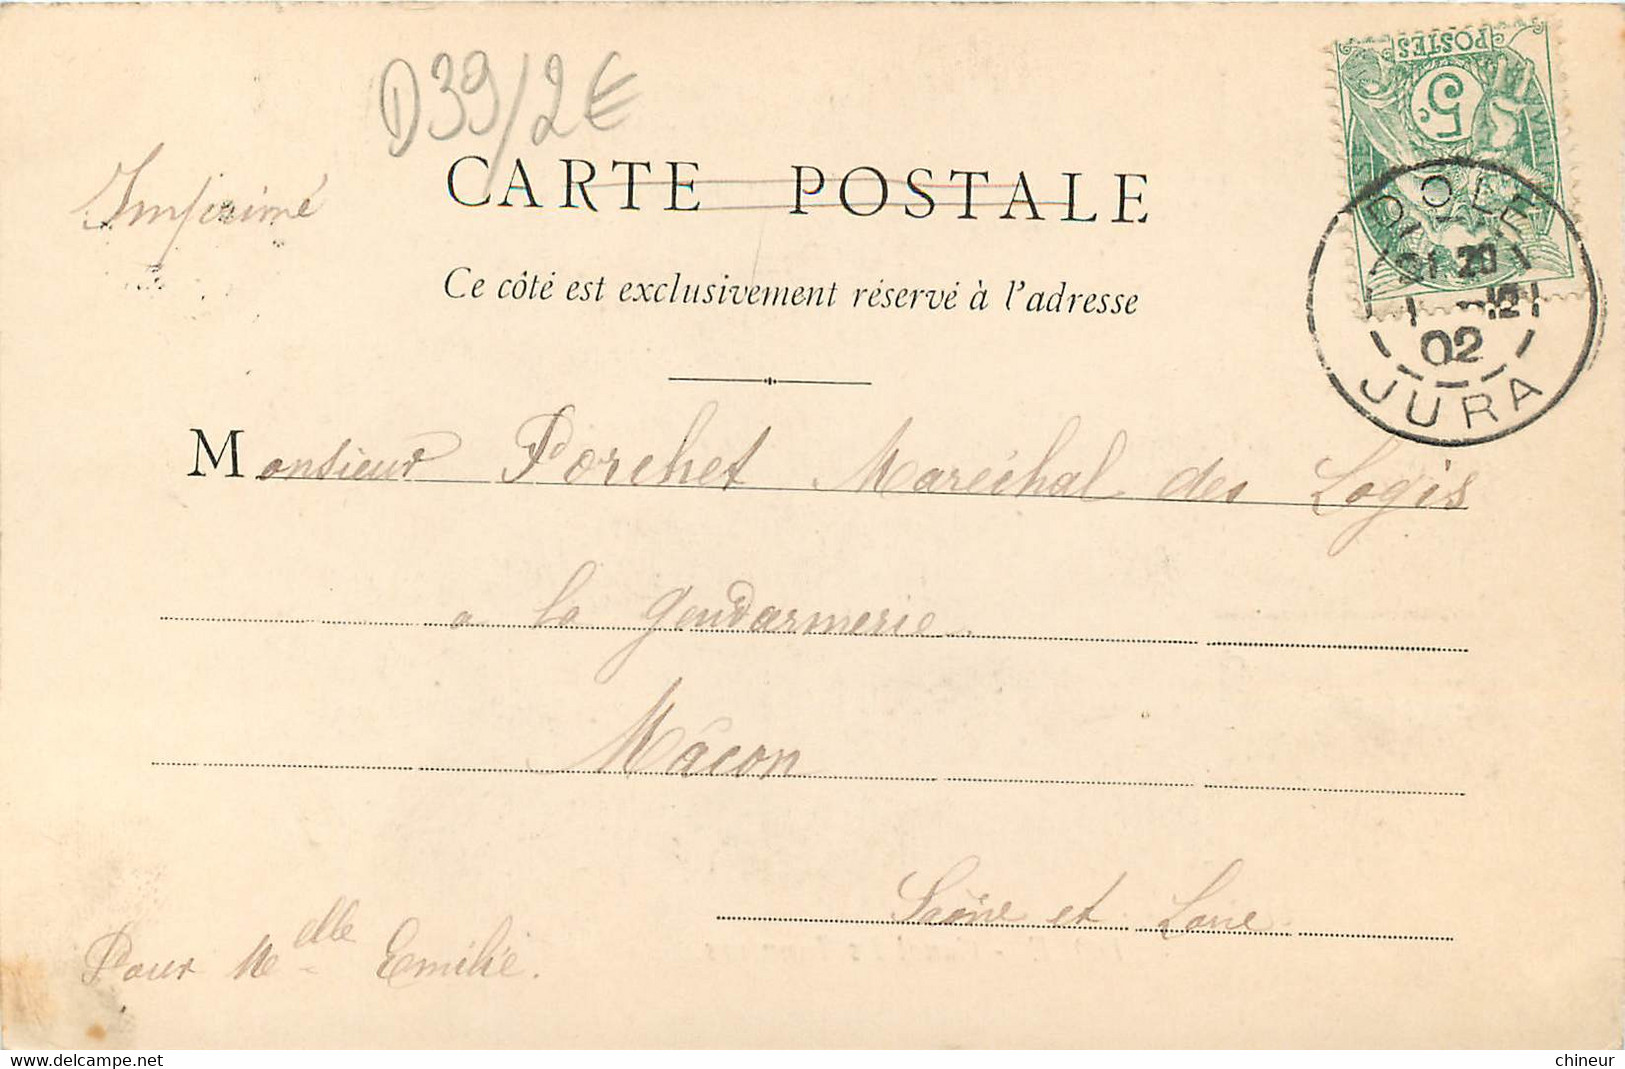 D39/2€
Imprimé
CARTE POSTALE
Ce côté est exclusivement réservé à l'adresse
POSTES
5c
DOLE
20
02
JURA
Monsieur Porchet Maréchal des Logis
a la Gendarmerie
Mâcon
Saône et Loire
Pour Melle Emilie.
delcampe.net
chineur